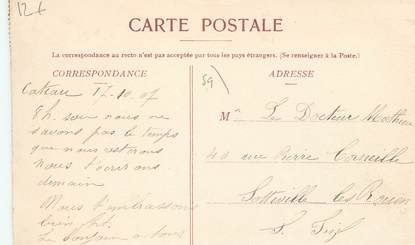 12 f
CARTE POSTALE
La correspondance au recto n'est pas acceptée par tous les pays étrangers. (Se renseigner à la Poste.)
CORRESPONDANCE
59
ADRESSE
Cateau 17-10-07
8h. soir nous ne
savons pas le temps
que nous resterons
Nous t'écrirons
demain
Nous t'embrassons
bien
Le bonjour a tous
M Le Docteur Mathieu
40 rue Pierre Corneille
Sotteville les Rouen
S. Inf